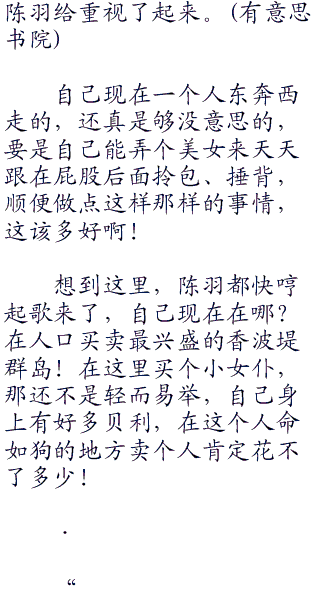 陈羽给重视了起来。(有意思
书院)
自己现在一个人东奔西
走的，还真是够没意思的，
要是自己能弄个美女来天天
跟在屁股后面拎包、捶背，
顺便做点这样那样的事情，
这该多好啊！
想到这里，陈羽都快哼
起歌来了，自己现在在哪？
在人口买卖最兴盛的香波堤
群岛！在这里买个小女仆，
那还不是轻而易举，自己身
上有好多贝利，在这个人命
如狗的地方卖个人肯定花不
了多少！
．
“